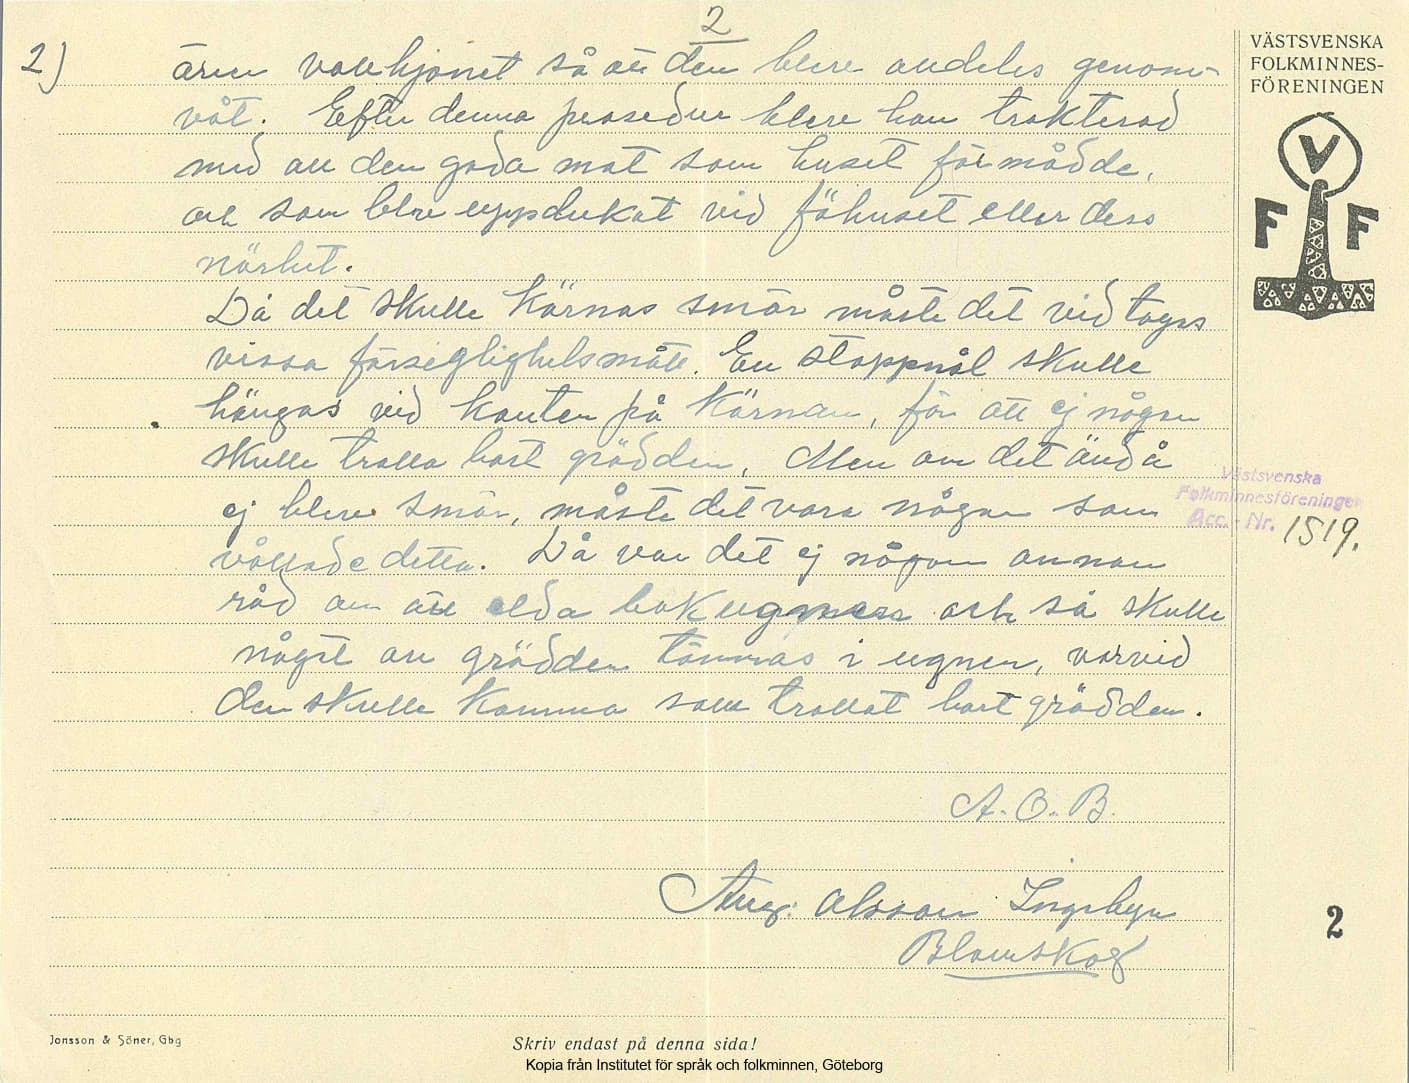 2
2)
ären vallhjonet så att den blev alldeles genom-
våt. Efter denna prosedur blev hon trakterad
med all den goda mat som huset förmådde,
och som blev uppdukat vid fähuset eller dess
närhet.
Då det skulle kärnas smör måste det vid tagas
vissa försiglighetsmått. En stoppnål skulle
hängas vid kanten på kärnan, för att ej någon
skulle trolla bort grädden. Men om det ändå
ej blev smör, måste det vara någon som
vållade detta. Då var det ej någon annan
råd än att elda bakugnen och så skulle
något av grädden tömmas i ugnen, varvid
den skulle komma som trollat bort grädden.
A. O. B.
Aug. Olsson Ingribyn
Blomskog
VÄSTSVENSKA
FOLKMINNES-
FÖRENINGEN
V
F F
Västsvenska
Folkminnesföreningen
Acc. - Nr. 1519.
2
Jonsson & Söner, Gbg
Skriv endast på denna sida!
Kopia från Institutet för språk och folkminnen, Göteborg